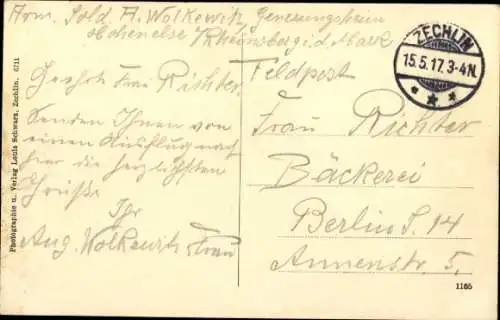 Arm. Sold. A. Wolkewitz, Genesungsheim
Hohenelse b/Rheinsberg i. d. Mark
ZECHLIN
15.5.17. 3-4N.
Feldpost
Geehrte Frau Richter,
Senden Ihnen von
einem Ausflug nach
hier die herzlichsten
Grüße
Ihr
Aug. Wolkewitz, Frau
Frau Richter
Bäckerei
Berlin S. 14
Annenstr. 5.
1165
Photographie u. Verlag Louis Schwarz, Zechlin. 6711